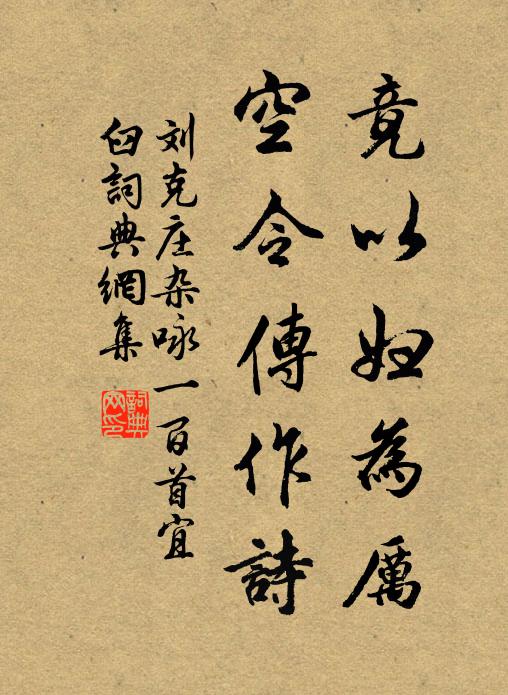 竟以妲為厲
空令傳作詩
刘克庄杂咏一百首宜
臼詞典網集
詞典
网印